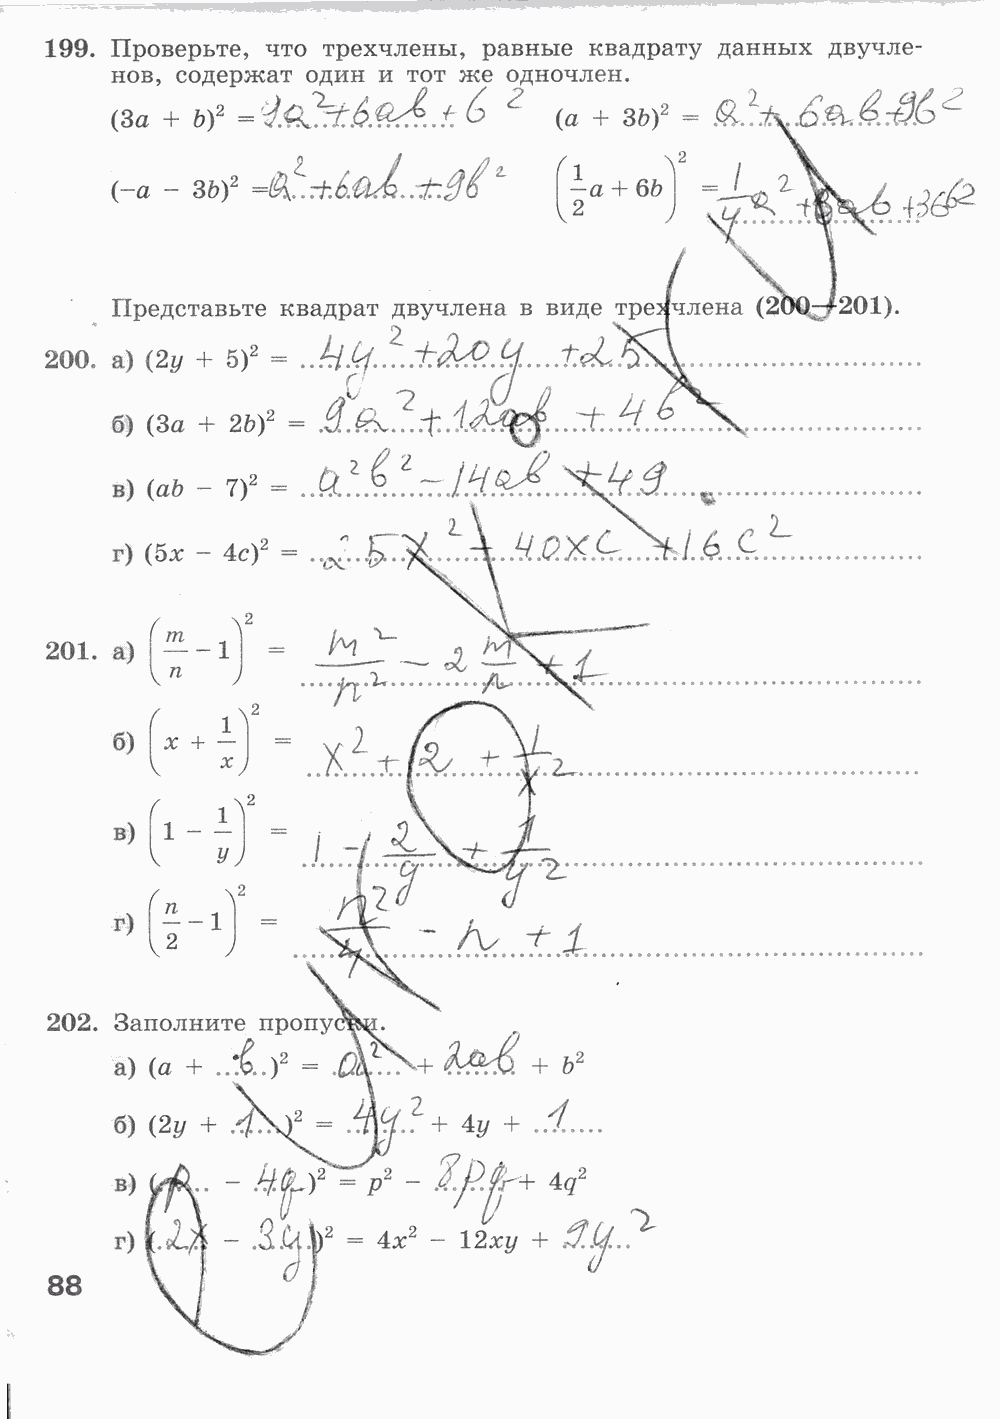 199. Проверьте, что трехчлены, равные квадрату данных двучле-
нов, содержат один и тот же одночлен.
(3a + b)² = 9a² + 6ab + b² (a + 3b)² = a² + 6ab + 9b²
(−a − 3b)² = a² + 6ab + 9b² (1/2 a + 6b)² = 1/4 a² + 6ab + 36b²
Представьте квадрат двучлена в виде трехчлена (200—201).
200. а) (2y + 5)² = 4y² + 20y + 25
б) (3a + 2b)² = 9a² + 12ab + 4b²
в) (ab − 7)² = a²b² − 14ab + 49
г) (5x − 4c)² = 25x² − 40xc + 16c²
201. а) (m/n − 1)² = m²/n² − 2 m/n + 1
б) (x + 1/x)² = x² + 2 + 1/x²
в) (1 − 1/y)² = 1 − 2/y + 1/y²
г) (n/2 − 1)² = n²/4 − n + 1
202. Заполните пропуски.
а) (a + b)² = a² + 2ab + b²
б) (2y + 1)² = 4y² + 4y + 1
в) (p − 4q)² = p² − 8pq + 4q²
г) (2x − 3y)² = 4x² − 12xy + 9y²
88